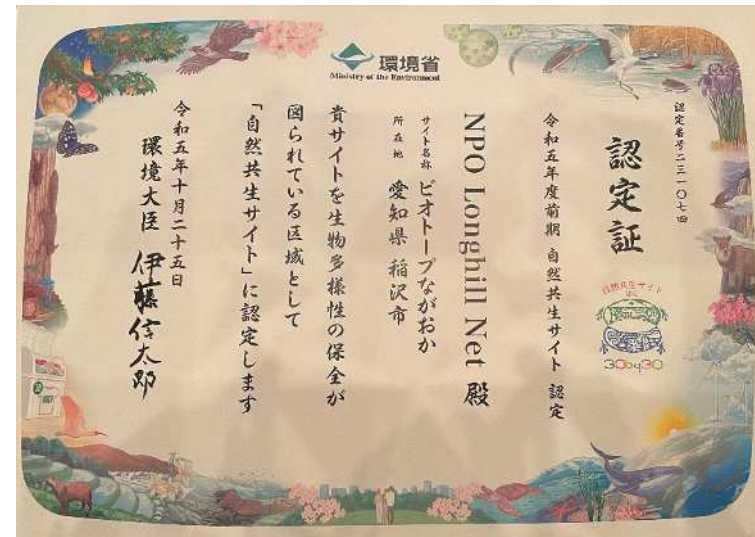 環境省
Ministry of the Environment
認定番号二三一〇七四
認定証
自然共生サイト
30by30
令和五年度前期 自然共生サイト 認定
NPO Longhill Net 殿
サイト名称 ビオトープながおか
所在地 愛知県 稲沢市
貴サイトを生物多様性の保全が
図られている区域として
「自然共生サイト」に認定します
令和五年十月二十五日
環境大臣 伊藤信太郎